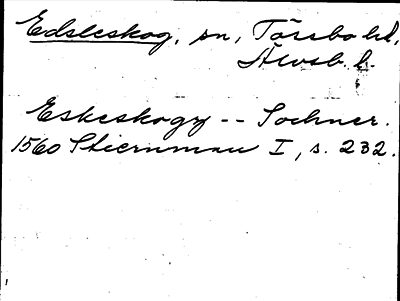 Edsleskog, sn, Tössbo hd,
Älvsb. l.
Eskeskogz -- Sochner.
1560 Stiernman I, s. 232.